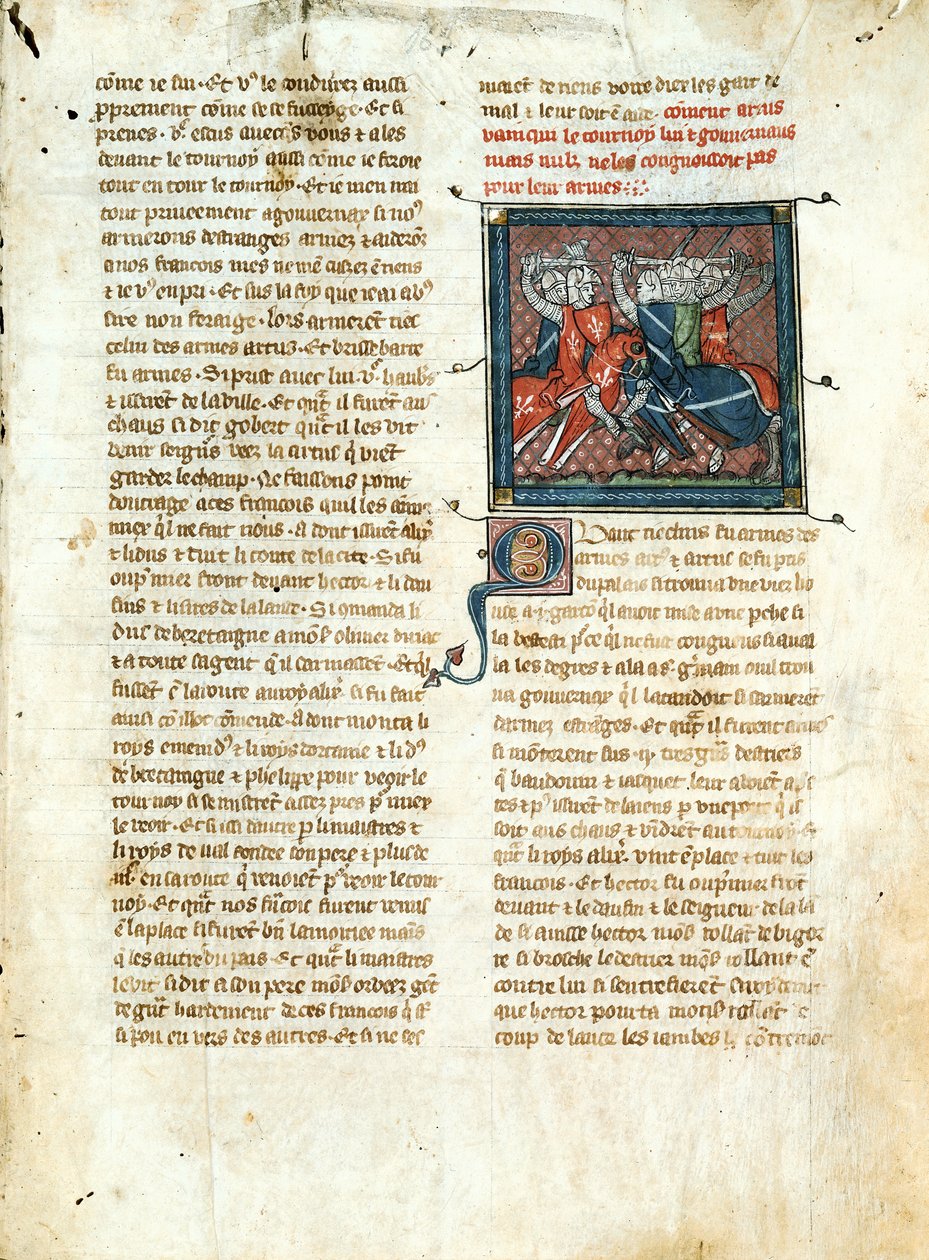 cōme ie sui · Et vꝰ le conduirez aussi
pprement cōme se ce fusse ge · Et si
prenes · escus auecqs vous et ales
deuant le tournoy aussi cōme ie feroie
tout en tour le tournoy · Et ie men irai
tout priueement a gouuernay si noꝰ
armerons destranges armez et aiderōs
a nos francois mes ne men
et ie vꝰ en pri · Et sus la foy que ie ai a vꝰ
sire non feraige · lors armerēt
celui des armes artus · Et brisebarre
fu armes · Si prist auec lui · v · haubs
et issirēt de la ville · Et quāt il furēt aus
chans si dit gobert quāt il les vit
biau seigns veez la artus q̄ viēt
garder le champ · Ne faissons point
doutrage a ces francois quil les aime
miex ql ne fait nous · a dont issirēt alix̄
et lidus et tuit li conte de la cite · Si fu
ou pmier front deuant hector et li dau
fins et li sires de la lande · Si cōmanda li
dus de bretaigne a mōs oliuier
et a toute sa gent q̄ il sarmassēt · Et ql
fussēt ē la route au roy alix̄ · si fu fait
ainsi cō illot cōmende · a dont monta li
roys emenidꝰ et li roys dorcanie et li dꝰ
de bretaigne et phelippe pour veoir le
tournoy si se mistrēt assez pres pꝰ miex
le veoir · Et si issi dautre p̱ li maistres et
li roys de ual fondee son pere et plus de
en sa route q̄ venoiēt pꝰ veoir le tour
noy · Et quāt nos frācois furent venus
ē la place si furēt bn̄ la moitiee mains
q̄ les autre du pais · Et quāt li maistres
le vit si dit a son pere mōs or veez gēt
de grāt hardement de ces francois q̄ sōt
si pou en vers des autres · Et si ne ses
maiēt de riens voire diex les gart de
mal et leur soit ē aide · cōment artus
vainqui le tournoy lui et gouuernaus
mais nulz ne les congnoissoit pas
pour leur armes
Quant tieclins fu armes des
armes artꝰ et artus se fu ptis
du palais si trouua vne viez ho
uce a · i · garcō ql auoit mise a vne pche si
la vesti pꝰ ce ql ne fut congneus si auala
la les degres et ala a s · gmain ou il trou
ua gouuernay q̄ l latandoit si sarmerēt
darmez estrāges · Et quāt il furent armes
si mōterent sus · ij · tresgrās destriers
q̄ baudouin et iacquet leur auoiēt apres
tes et pꝰ issirēt de laiens p vne porte q̄ is
soit aus chans et vīdrēt au tournoy · Et
quāt li roys alix̄ · vint ē place et tuit les
francois · Et hector fu ou pmier frōt
deuant et le daufin et le seigneur de la lā
de si auisse hector mōs rollāt de bigor
re si brosche le destrier mōs rollant ē
contre lui si sentrefierēt si roydemēt
que hector porta mōs rollāt de
coup de lance les iambes cōtremōt